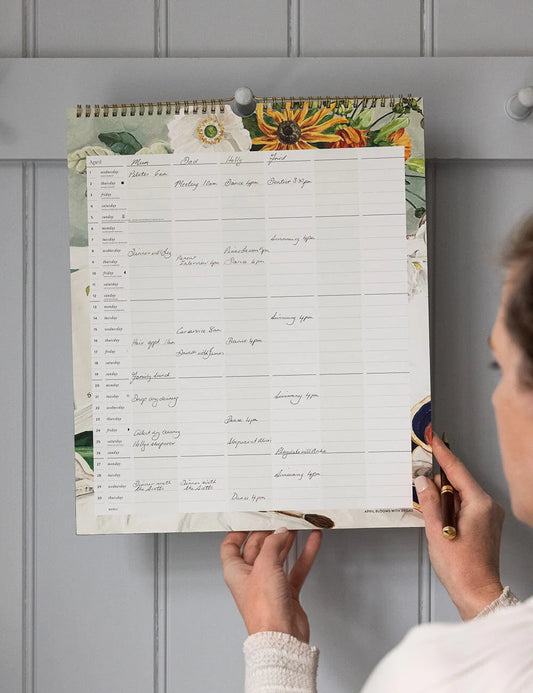 April Mum Dad Holly Fred
1 wednesday Pilates 6am
2 thursday Meeting 10am Dance 4pm Dentist 3:30pm
3 friday
4 saturday
5 sunday
6 monday
7 tuesday Swimming 4pm
8 wednesday
9 thursday Parent Interview 4pm Dance 4pm
10 friday
11 saturday
12 sunday
13 monday
14 tuesday Swimming 4pm
15 wednesday Car service 8am
16 thursday Hair appt 11am Dance 4pm
17 friday
18 saturday
19 sunday Family lunch
20 monday
21 tuesday Drop dry cleaning Swimming 4pm
22 wednesday
23 thursday Dance 4pm
24 friday Collect dry cleaning
25 saturday Holly's sleepover
26 sunday
27 monday
28 tuesday Swimming 4pm
29 wednesday Dinner with the Scotts Dinner with the Scotts
30 thursday Dance 4pm
notes
APRIL BLOOMS WITH